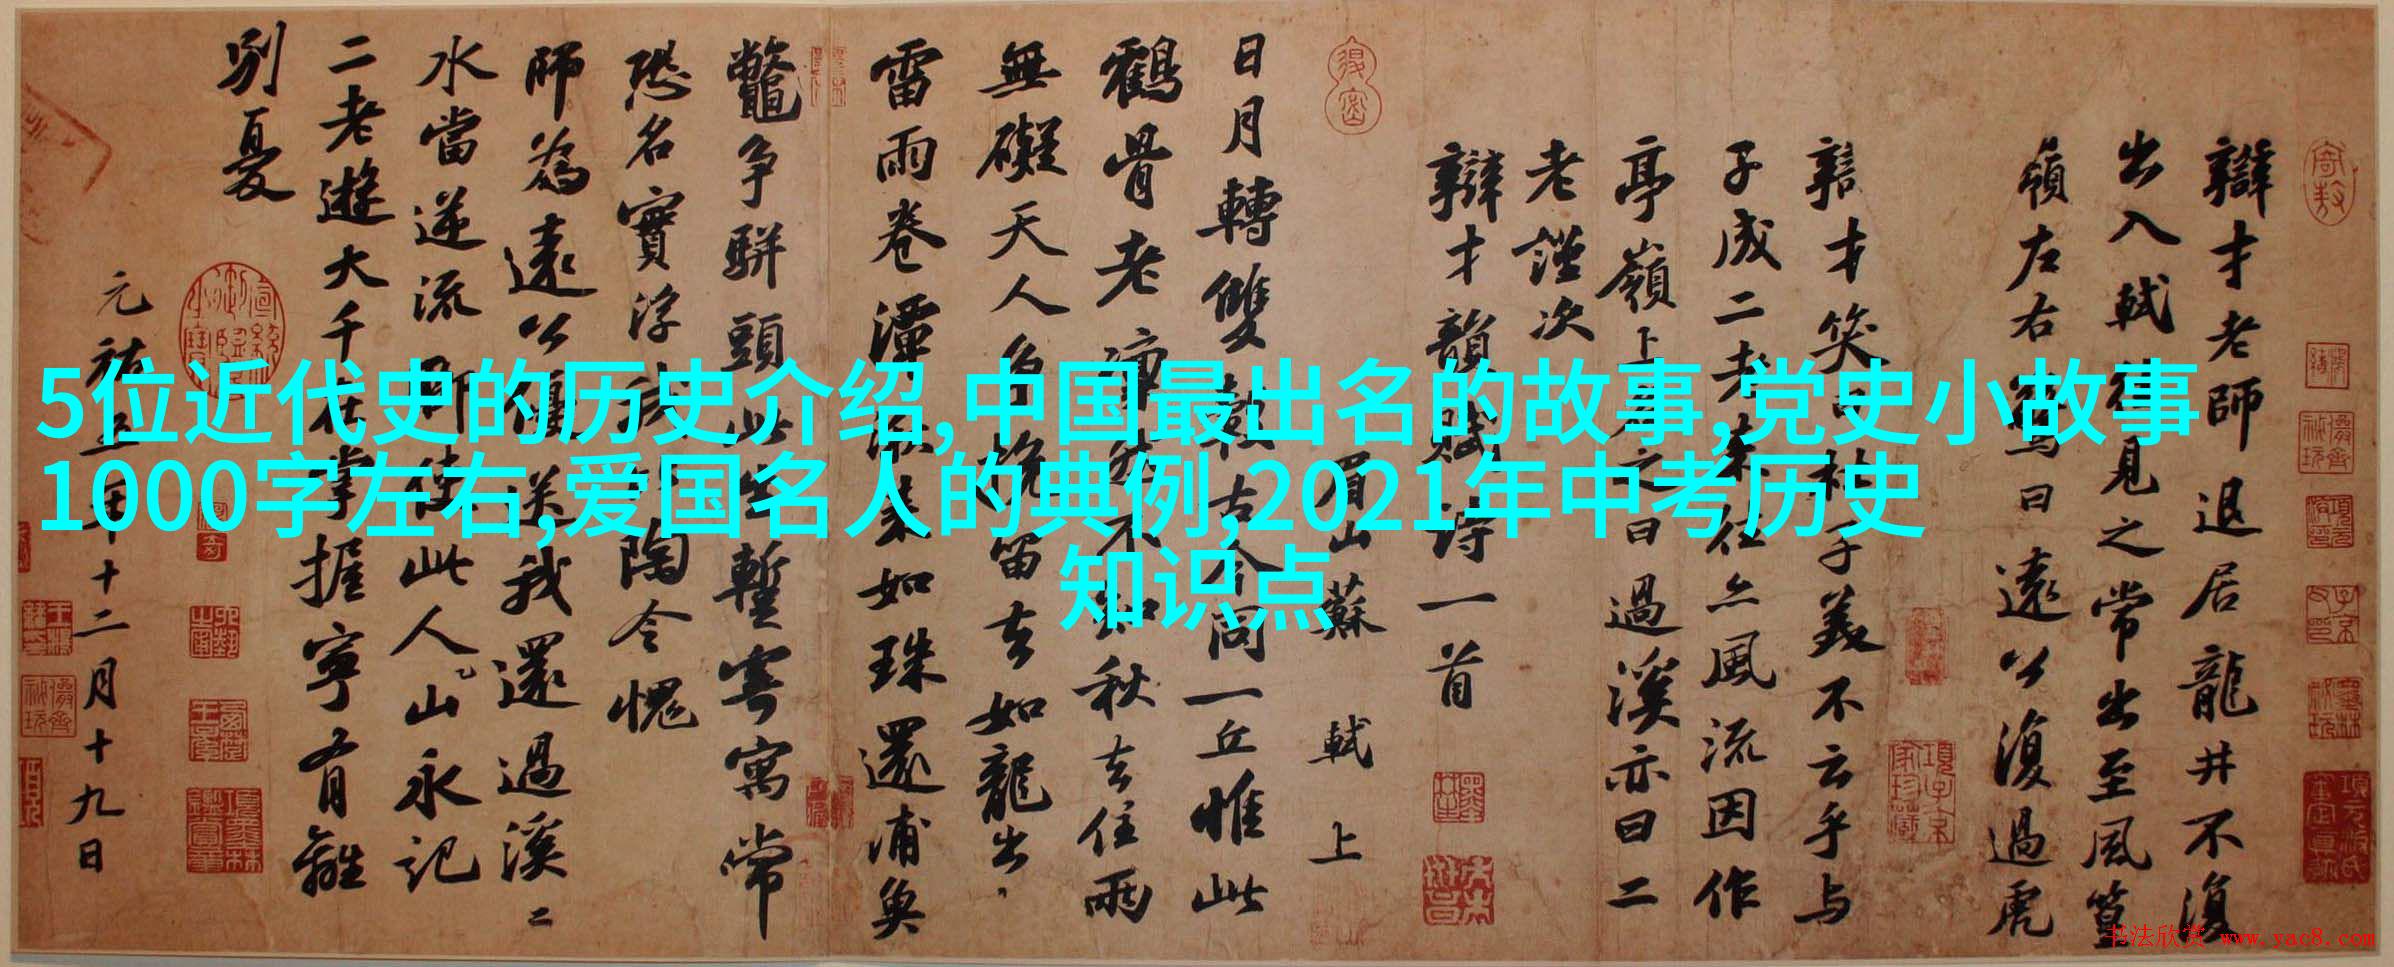 5位近代史的历史介绍,中国最出名的故事,党史小故事
1000字左右,爱国名人的典例,2021年中考历史
知识点
辯才老師退居龍井不復
出入軾往見之常出至風篁
嶺左右驚曰遠公復過虎
辯才笑曰杜子美不云乎与
子成二老來往亦風流因作
亭嶺上名之曰過溪亦曰二
老謹次
辯才韻賦詩一首
眉山蘇軾上
日月轉雙轂古今同一丘惟此
鶴骨老凜然不知秋去住兩
無礙天人爭挽留去如龍出
雷雨卷潭湫來如珠還浦魚
鼈爭駢頭此生暫寄寓常
恐名實浮我比陶令愧
師為遠公優送我還過溪二
水當逆流聊使此人山永記
二老遊大千在掌握寧有離
別憂
元祐五年十二月十九日
书法欣赏 www.yac8.com